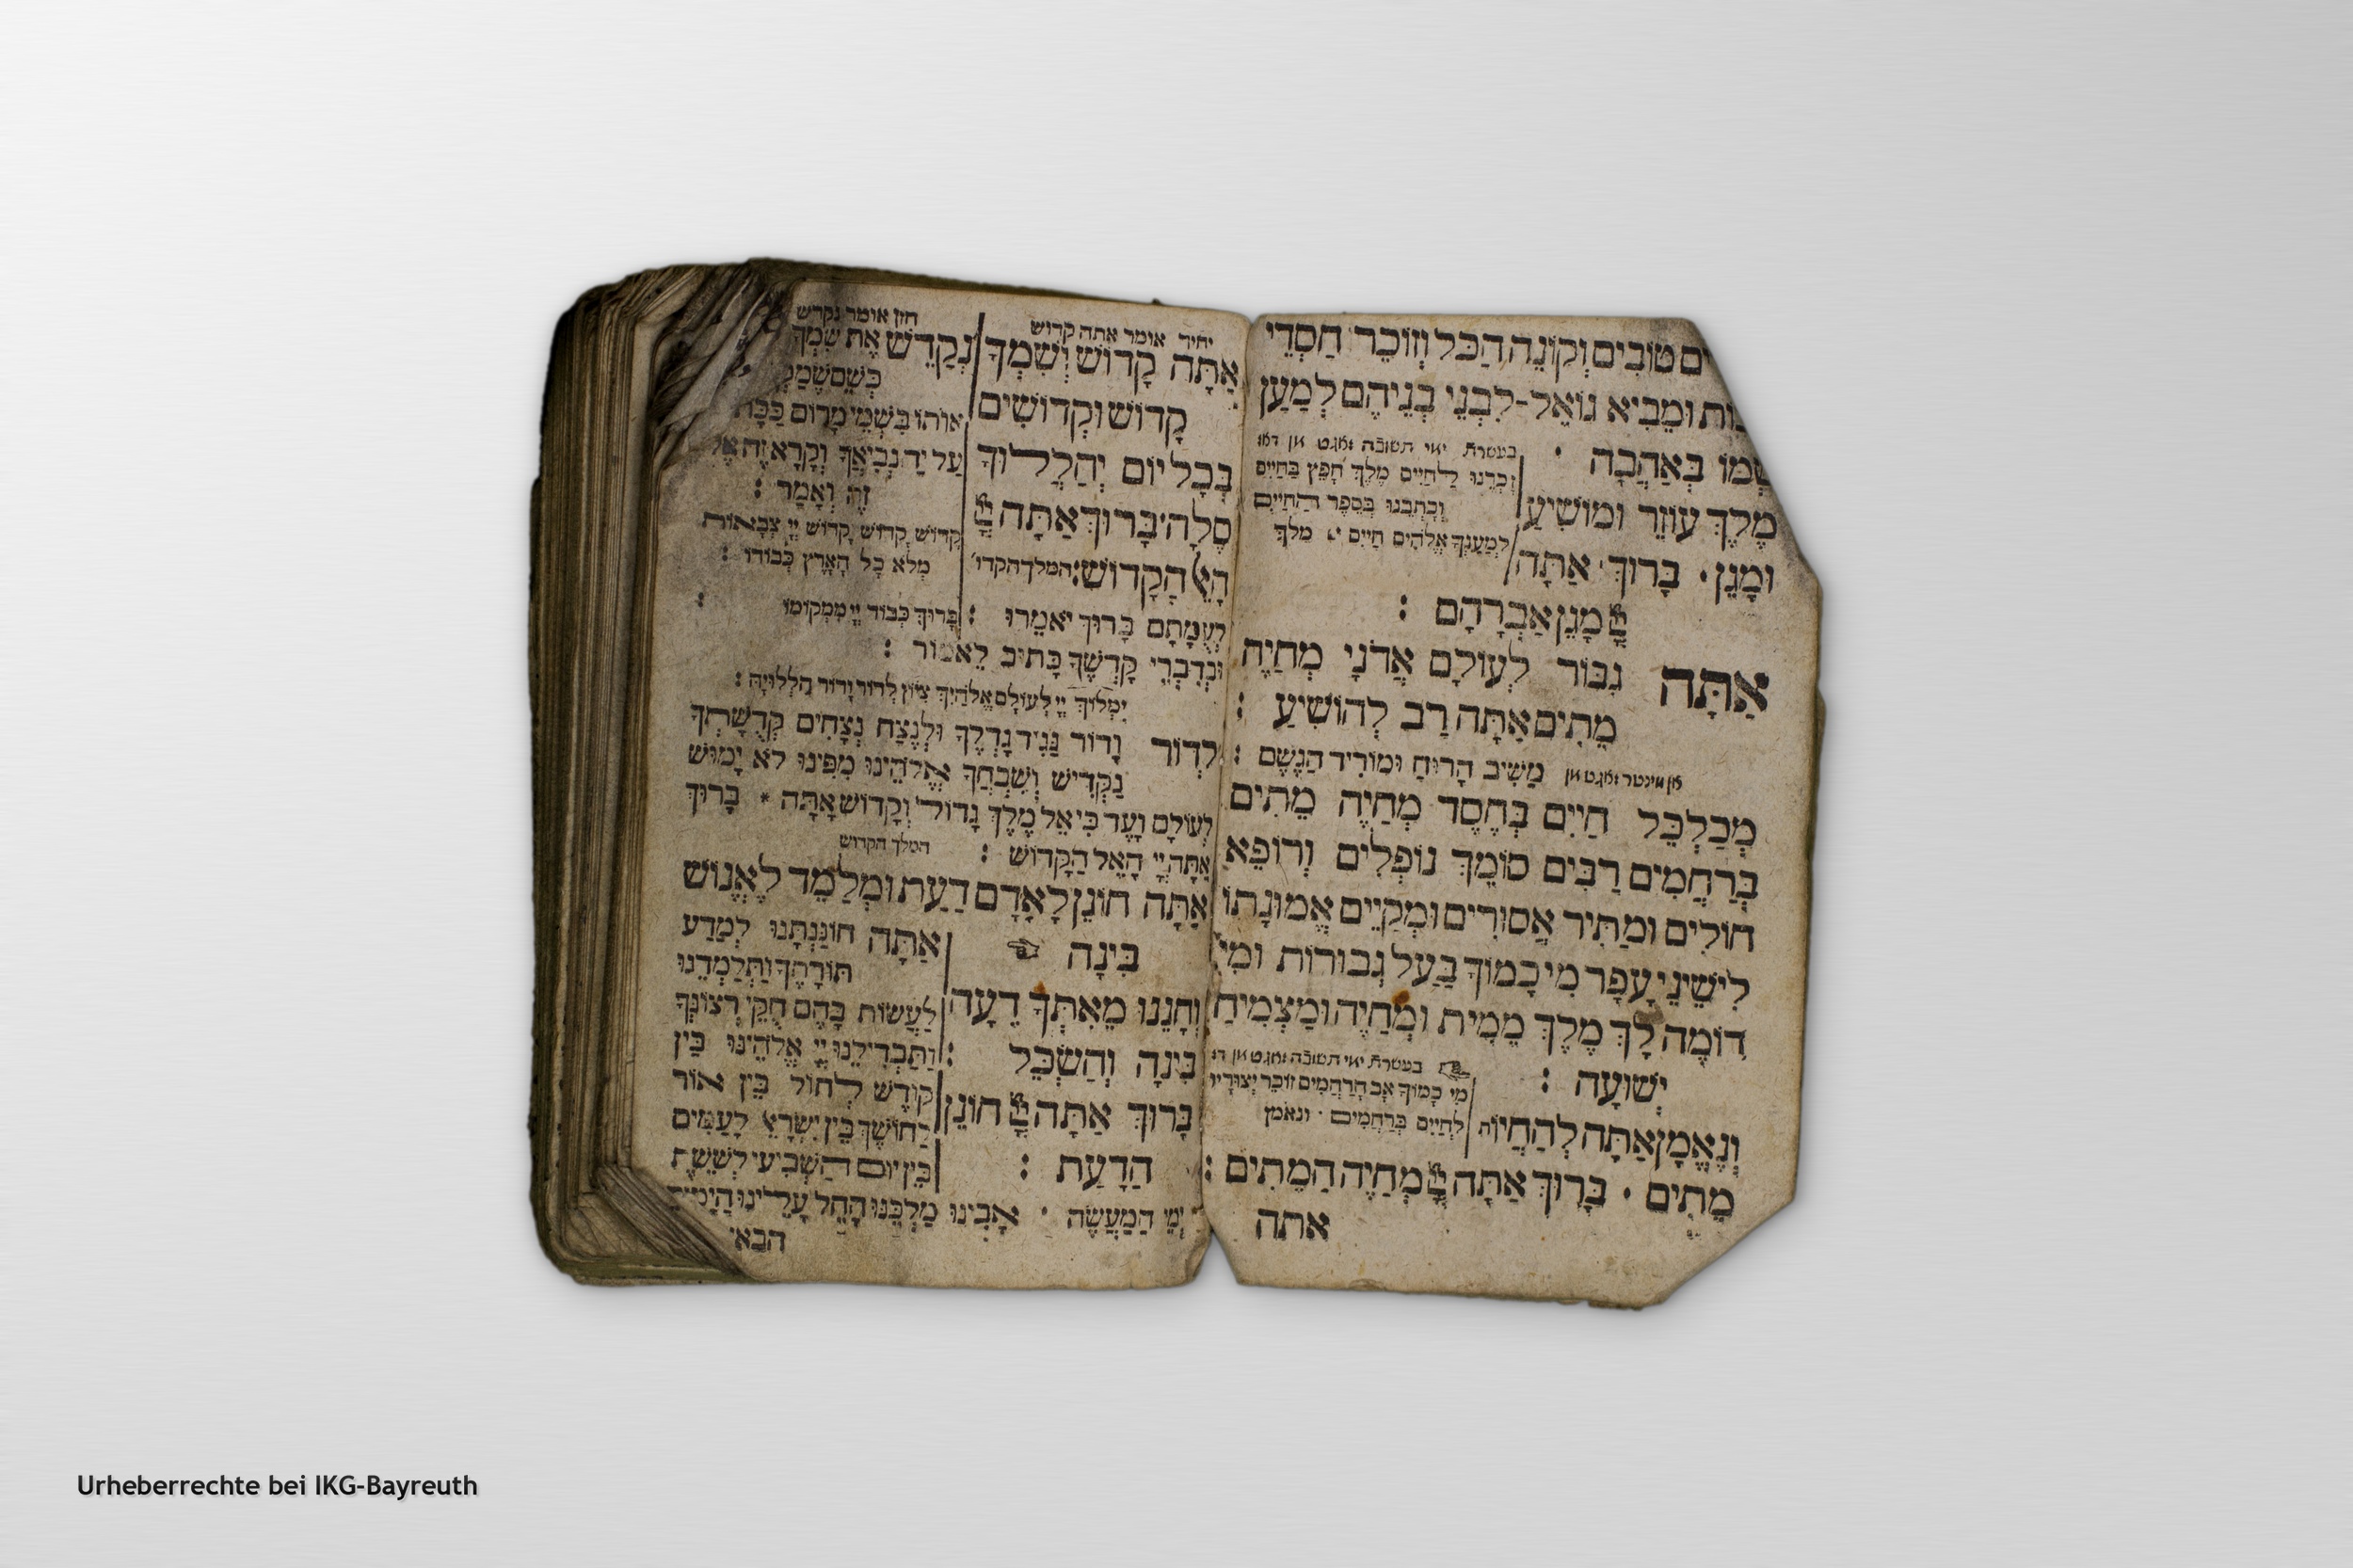 טוֹבִים וְקוֹנֵה הַכֹּל וְזוֹכֵר חַסְדֵי
וּמֵבִיא גוֹאֵל לִבְנֵי בְנֵיהֶם לְמַעַן
שְׁמוֹ בְּאַהֲבָה ·
בעשרת ימי תשובה זאגט אן דאז
זָכְרֵנוּ לַחַיִּים מֶלֶךְ חָפֵץ בַּחַיִּים
וְכָתְבֵנוּ בְּסֵפֶר הַחַיִּים
לְמַעַנְךָ אֱלֹהִים חַיִּים · מלך
מֶלֶךְ עוֹזֵר וּמוֹשִׁיעַ
וּמָגֵן · בָּרוּךְ אַתָּה
מָגֵן אַבְרָהָם :
אַתָּה גִבּוֹר לְעוֹלָם אֲדֹנָי מְחַיֶּה
מֵתִים אַתָּה רַב לְהוֹשִׁיעַ :
אן ווינטר זאגט אן מַשִּׁיב הָרוּחַ וּמוֹרִיד הַגֶּשֶׁם :
מְכַלְכֵּל חַיִּים בְּחֶסֶד מְחַיֶּה מֵתִים
בְּרַחֲמִים רַבִּים סוֹמֵךְ נוֹפְלִים וְרוֹפֵא
חוֹלִים וּמַתִּיר אֲסוּרִים וּמְקַיֵּם אֱמוּנָתוֹ
לִישֵׁנֵי עָפָר מִי כָמוֹךָ בַּעַל גְּבוּרוֹת וּמִי
דוֹמֶה לָךְ מֶלֶךְ מֵמִית וּמְחַיֶּה וּמַצְמִיחַ
יְשׁוּעָה :
בעשרת ימי תשובה זאגט אן דז
מִי כָמוֹךָ אַב הָרַחֲמִים זוֹכֵר יְצוּרָיו
לְחַיִּים בְּרַחֲמִים · ונאמן
וְנֶאֱמָן אַתָּה לְהַחֲיוֹת
מֵתִים · בָּרוּךְ אַתָּה מְחַיֵּה הַמֵּתִים :
אתה
יחיד אומר אתה קדוש
אַתָּה קָדוֹשׁ וְשִׁמְךָ
קָדוֹשׁ וּקְדוֹשִׁים
בְּכָל יוֹם יְהַלְלוּךָ
סֶלָה בָּרוּךְ אַתָּה
הָאֵל הַקָּדוֹשׁ : המלך הקדו'
חזן אומר נקדש
נְקַדֵּשׁ אֶת שִׁמְךָ
כְּשֵׁם
אוֹתוֹ בִּשְׁמֵי מָרוֹם כַּכָּתוּב
עַל יַד נְבִיאֲךָ וְקָרָא זֶה אֶל
זֶה וְאָמַר :
קָדוֹשׁ קָדוֹשׁ קָדוֹשׁ יְיָ צְבָאוֹת
מְלֹא כָל הָאָרֶץ כְּבוֹדוֹ :
לְעֻמָּתָם בָּרוּךְ יֹאמֵרוּ : בָּרוּךְ כְּבוֹד יְיָ מִמְּקוֹמוֹ :
וּבְדִבְרֵי קָדְשְׁךָ כָּתוּב לֵאמוֹר :
יִמְלוֹךְ יְיָ לְעוֹלָם אֱלֹהַיִךְ צִיּוֹן לְדוֹר וָדוֹר הַלְלוּיָהּ :
לְדוֹר וָדוֹר נַגִּיד גָּדְלֶךָ וּלְנֵצַח נְצָחִים קְדֻשָּׁתְךָ
נַקְדִּישׁ וְשִׁבְחֲךָ אֱלֹהֵינוּ מִפִּינוּ לֹא יָמוּשׁ
לְעוֹלָם וָעֶד כִּי אֵל מֶלֶךְ גָּדוֹל וְקָדוֹשׁ אָתָּה * בָּרוּךְ
אַתָּה יְיָ הָאֵל הַקָּדוֹשׁ : המלך הקדוש
אַתָּה חוֹנֵן לְאָדָם דַּעַת וּמְלַמֵּד לֶאֱנוֹשׁ
בִּינָה
וְחָנֵּנוּ מֵאִתְּךָ דֵעָה
בִּינָה וְהַשְׂכֵּל :
בָּרוּךְ אַתָּה חוֹנֵן
הַדָּעַת :
אַתָּה חוֹנַנְתָּנוּ לְמַדַּע
תּוֹרָתֶךָ וַתְּלַמְּדֵנוּ
לַעֲשׂוֹת בָּהֶם חֻקֵּי רְצוֹנֶךָ
וַתַּבְדִּילֵנוּ יְיָ אֱלֹהֵינוּ בֵּין
קוֹדֶשׁ לְחוֹל בֵּין אוֹר
לְחוֹשֶׁךְ בֵּין יִשְׂרָאֵל לָעַמִּים
בֵּין יוֹם הַשְּׁבִיעִי לְשֵׁשֶׁת
יְמֵי הַמַּעֲשֶׂה · אָבִינוּ מַלְכֵּנוּ הָחֵל עָלֵינוּ הַיָּמִים
הבאי'
Urheberrechte bei IKG-Bayreuth